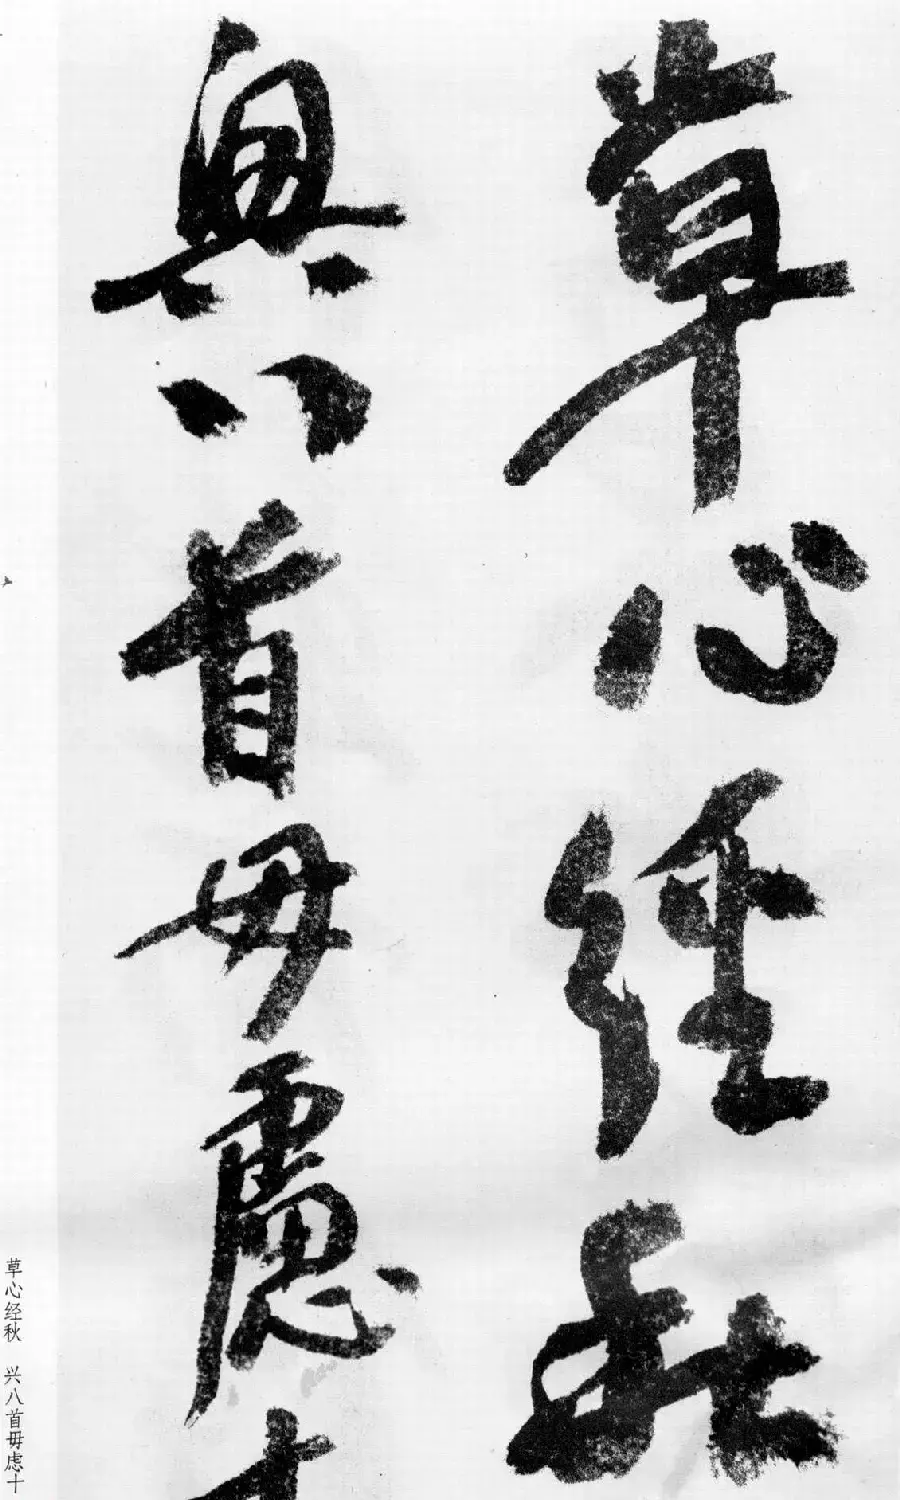 草心經秋
興八首毋慮十
草心经秋 兴八首毋虑十